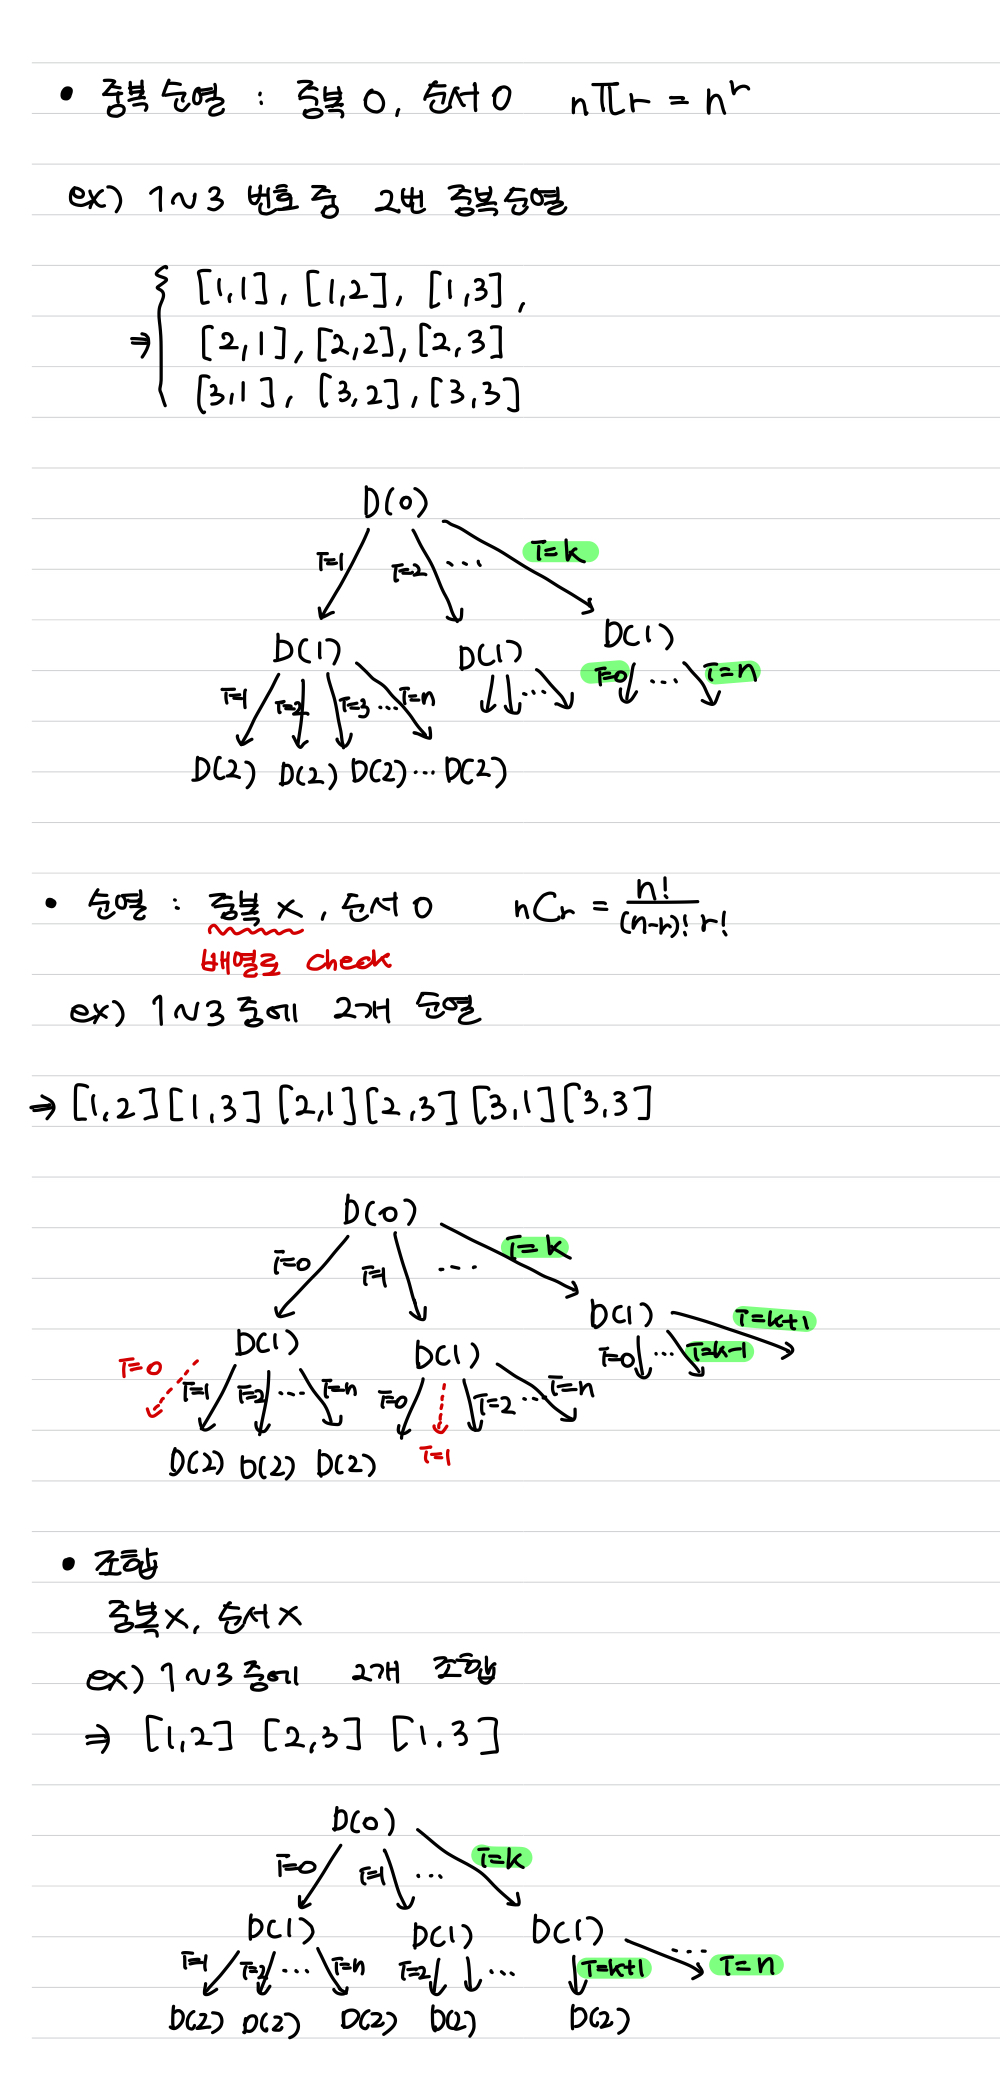 • 중복 순열 : 중복 O, 순서 O nΠr = n^r
ex) 1~3 번호 중 2번 중복순열
⇒ { [1,1], [1,2], [1,3],
[2,1], [2,2], [2,3]
[3,1], [3,2], [3,3]
D(0)
i=1 i=2 ... i=k
D(1) D(1) D(1)
i=1 i=2 i=3 ... i=n ... i=0 ... i=n
D(2) D(2) D(2) ... D(2)
• 순열 : 중복 x, 순서 O nCr = n! / (n-r)! r!
배열로 check
ex) 1~3 중에 2개 순열
⇒ [1,2] [1,3] [2,1] [2,3] [3,1] [3,3]
D(0)
i=0 i=1 ... i=k
D(1) D(1) D(1) i=k+1
i=0 i=1 i=2 ... i=n i=0 i=2 ... i=n i=0 ... i=k-1
D(2) D(2) D(2) i=1
• 조합
중복x, 순서x
ex) 1~3 중에 2개 조합
⇒ [1,2] [2,3] [1,3]
D(0)
i=0 i=1 ... i=k
D(1) D(1) D(1)
i=1 i=2 ... i=n i=2 ... i=k+1 ... i=n
D(2) D(2) D(2) D(2) D(2)